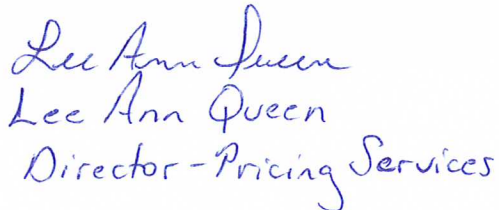 Lee Ann Queen
Lee Ann Queen
Director - Pricing Services